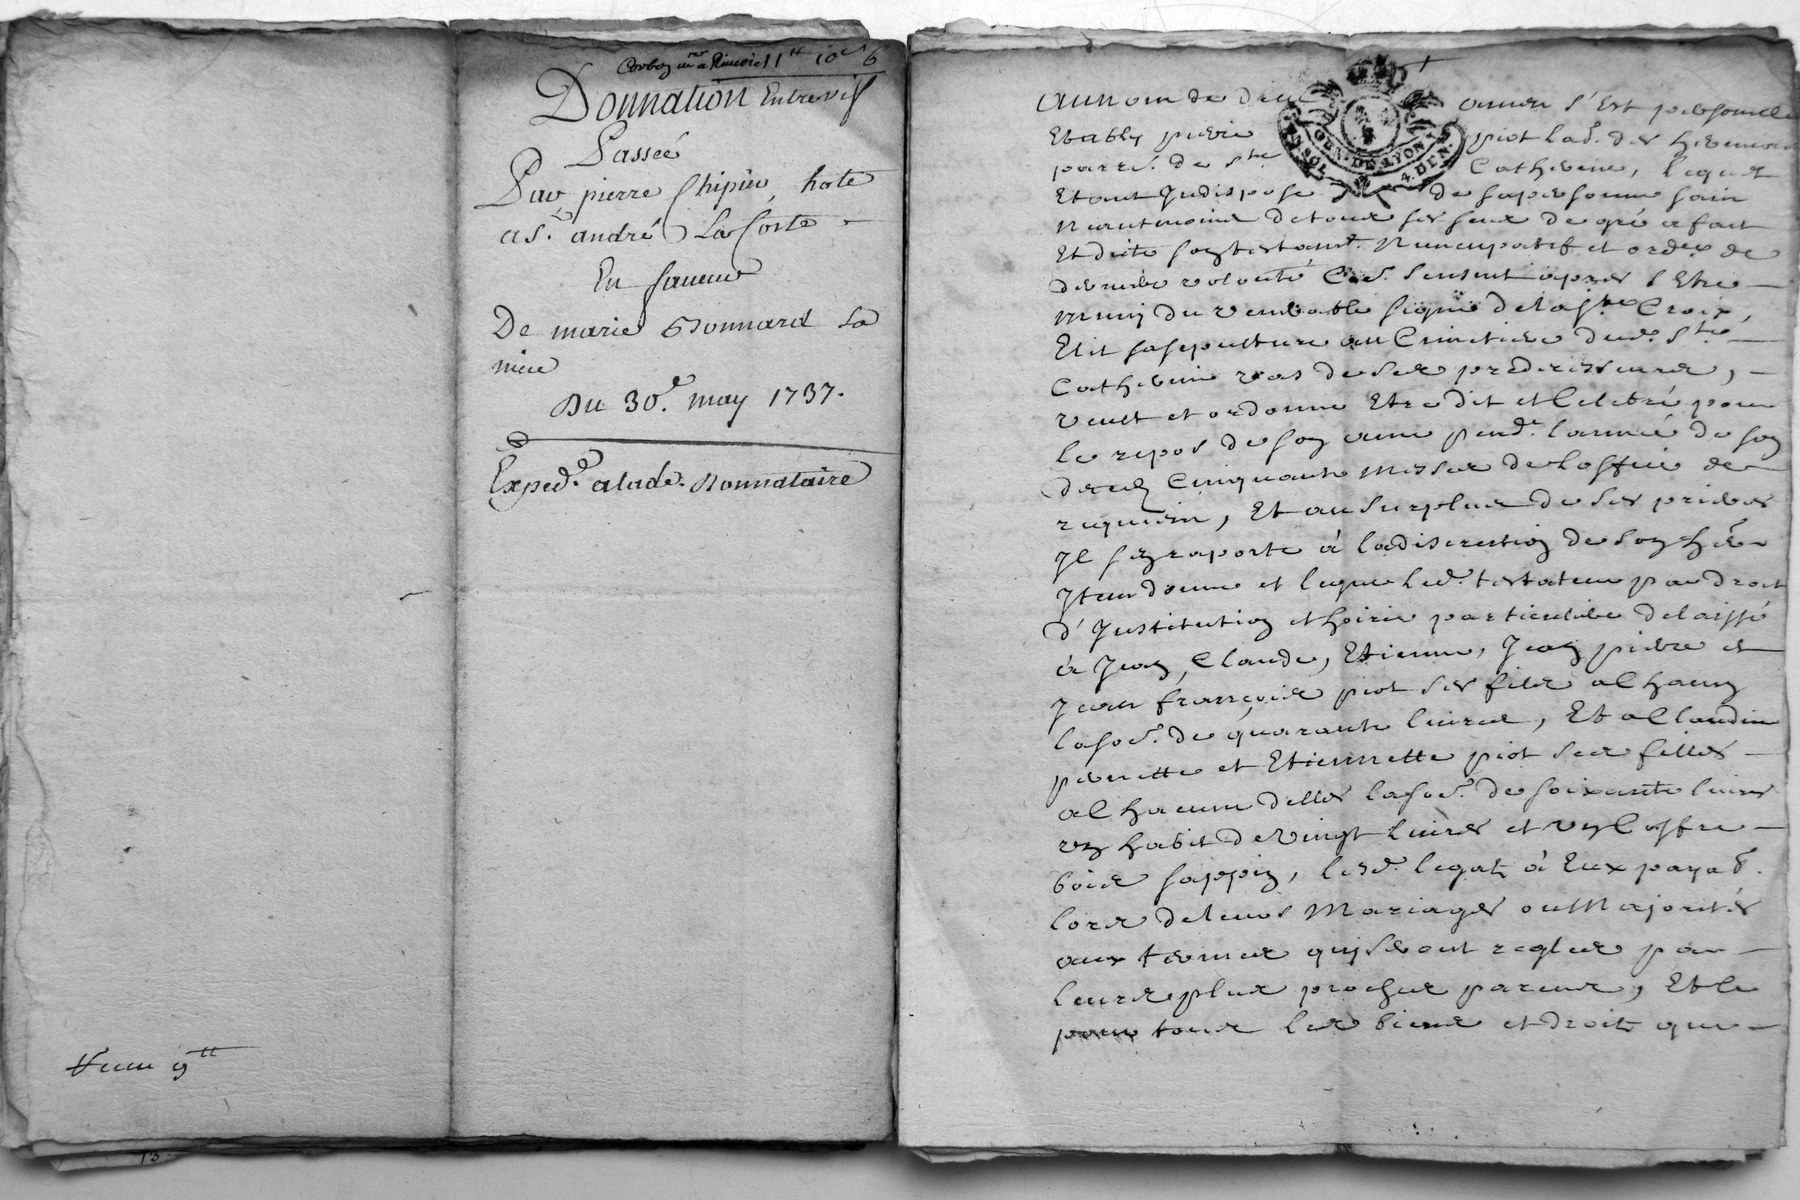 Donnation Entrevif
Passeé
Par pierre Chipier hote
a St. andré La Coste
En faveur
De marie Bonnard sa
niece
Du 30e. may 1737.
Exped.e alade. Donnataire
Receu 9tt
13
GEN. DE LYON
4. DEN.
Au nom de dieu amen s'est personelle
Etably pierre piot lad. des hermieres
parr.e de Ste Catherine, lequel
Etant Indisposé de sapersonne sain
Neantmoins detous ses sens de gré a fait
Et dicté son testamt. Nuncupatif et ordre. de
derniere volonté Coe. sensuit apres s'Etre
muny du venerable signe de la Ste Croix,
Elit sasepulture au Cimetiere dud. Ste
Catherine vas de ses predecesseurs,
veult et ordonne Etre dit et Celebré pour
le repos de son ame pendt. l'année de son
deceds Cinquante Messes de loffice de
requiem, Et au surplus de ses prieres
Il senraporte à la discretion de son her.
Item donne et legue led. testateur par droit
d'Institution et hoirie particuliere delaissé
à Jean, Claude, Etienne, Jean pierre et
Jean françois piot ses fils a Chacun
la soe. de quarante livres, Et a Claudine
pierrette et Etiennette piot ses filles
a Chacune delles la soe. de soixante livres
un habit de Vingt livres et un Coffre
bois sappin, lesd. legats à Eux payab.
lors deleurs Mariages ou Majorités
aux termes quiseront reglés par
leurs plus proches parens, Et le
pour tous les biens et droits que